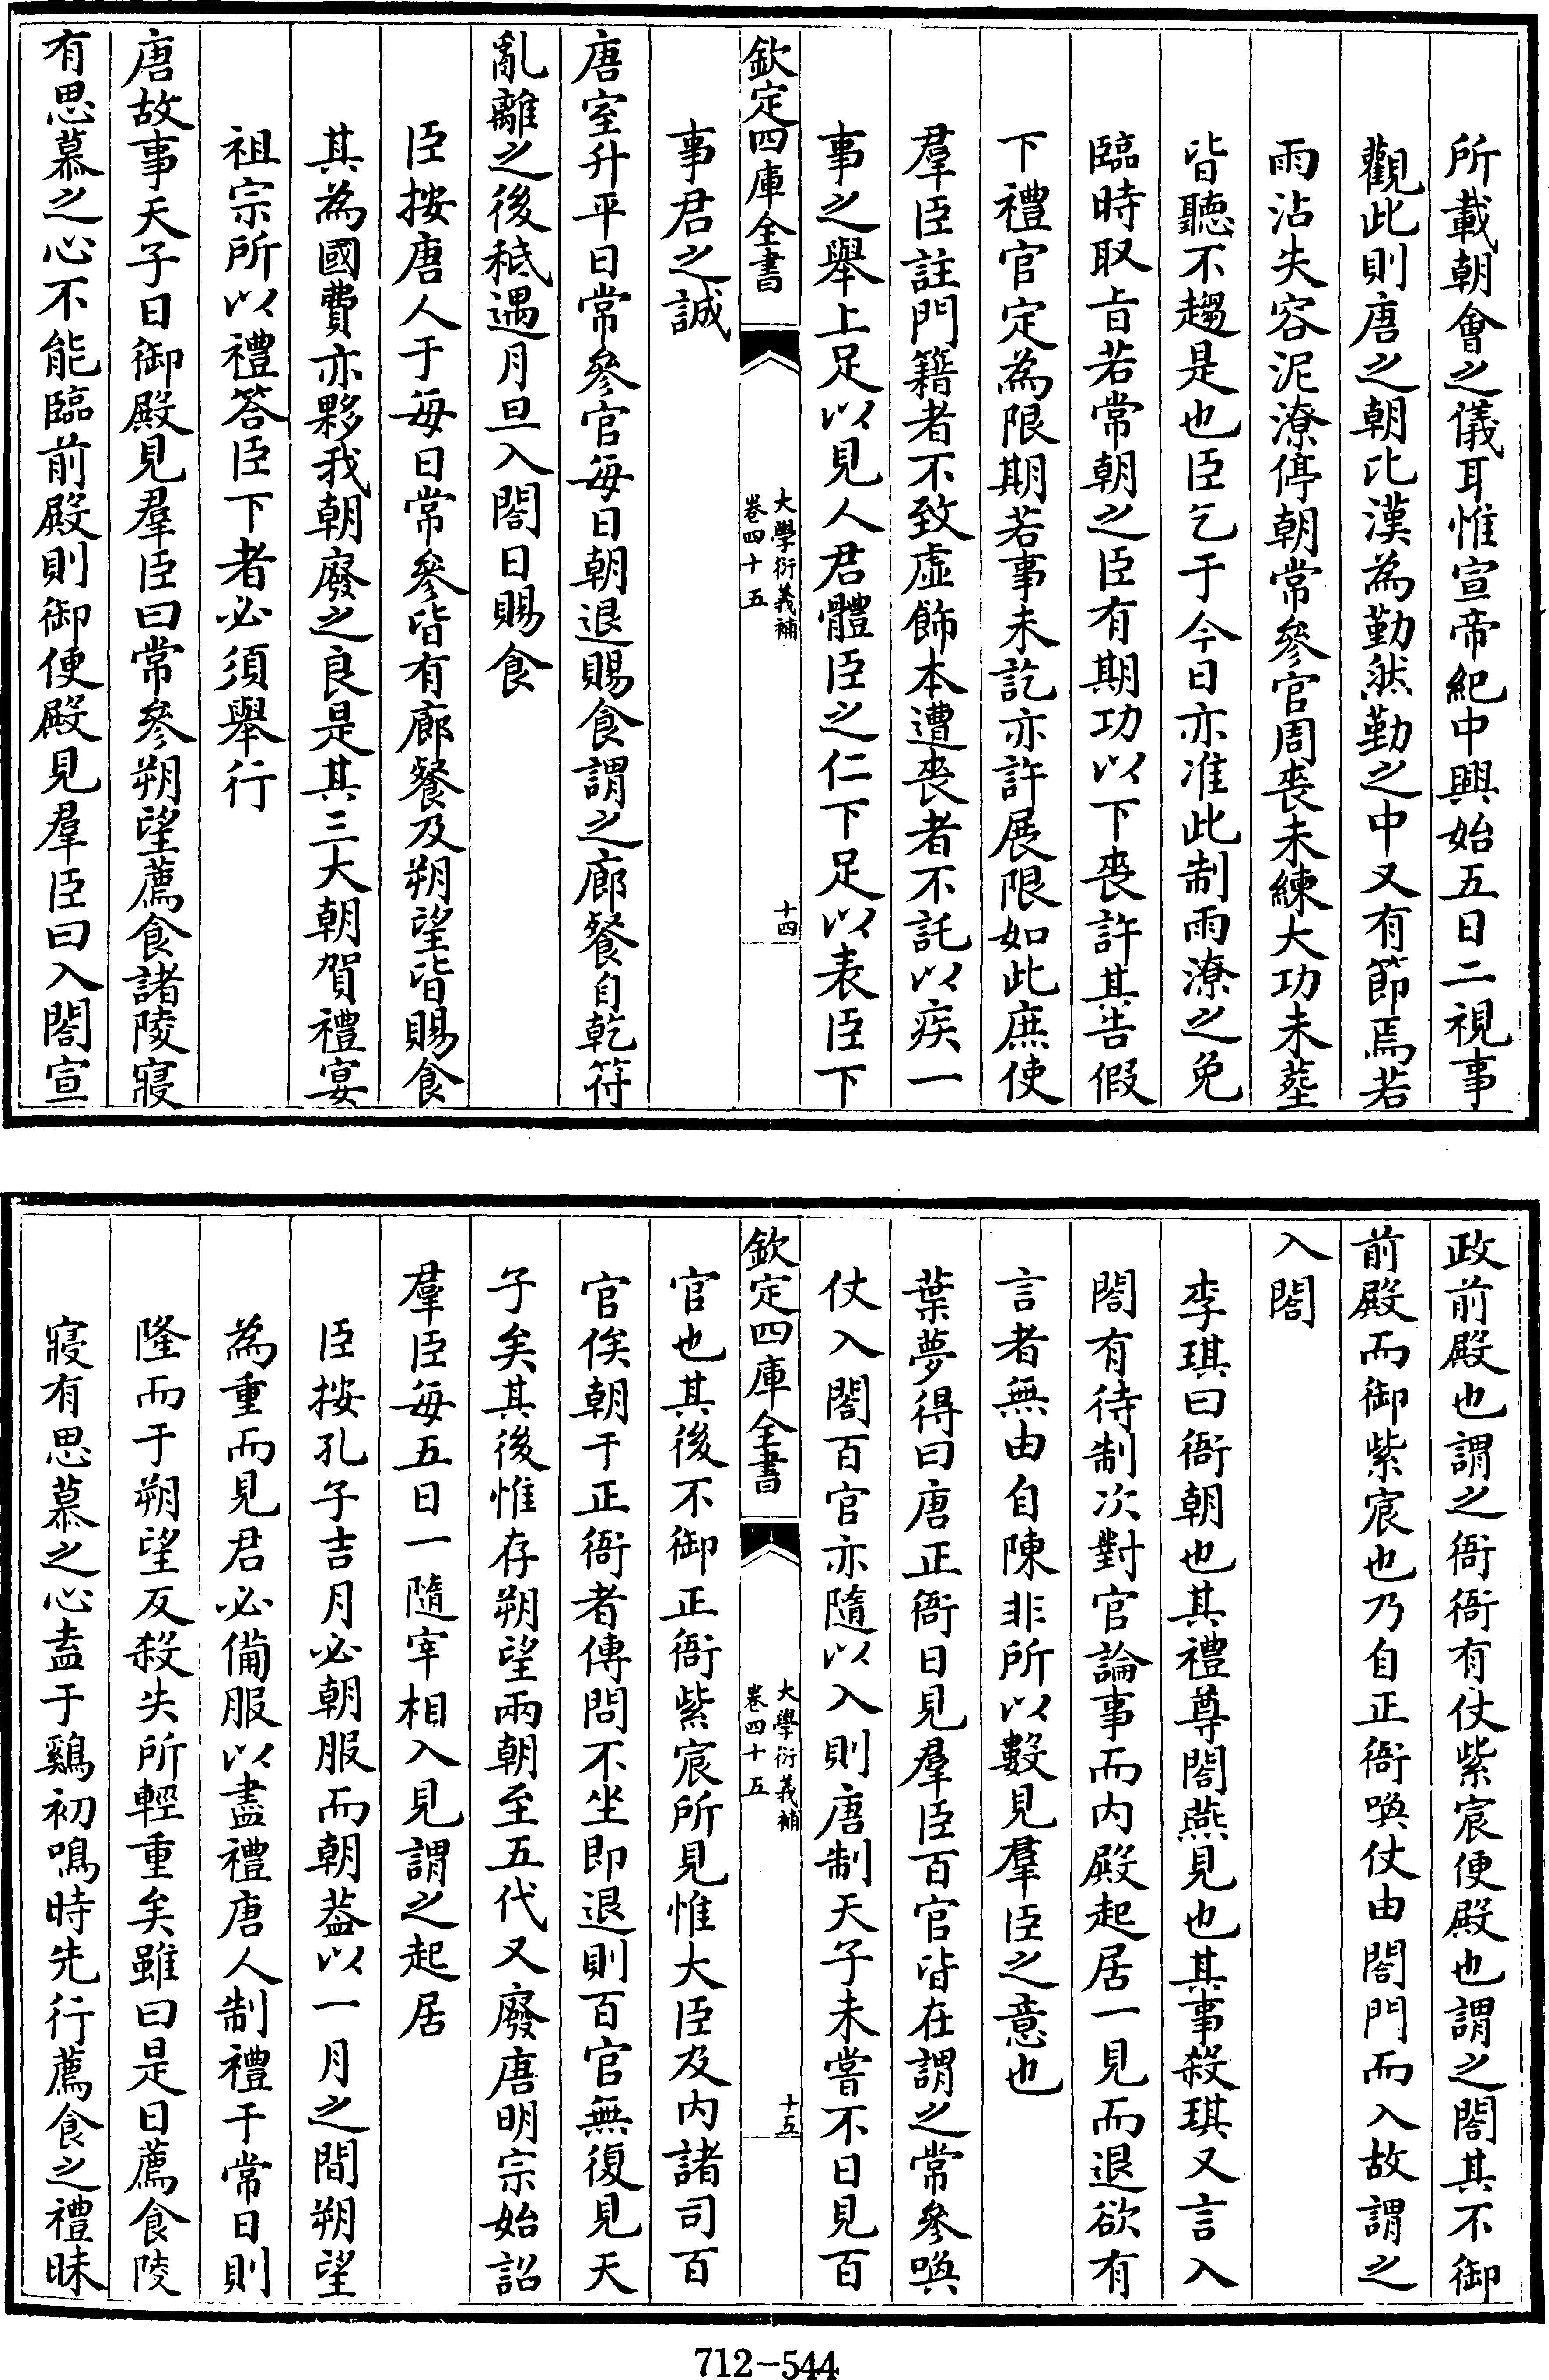 所載朝會之儀耳惟宣帝紀中興始五日二視事
觀此則唐之朝比漢為勤然勤之中又有節焉若
雨沾失容泥潦停朝常參官周喪未練大功未塟
皆聽不趨是也臣乞于今日亦准此制雨潦之免
臨時取旨若常朝之臣有期功以下喪許其告假
下禮官定為限期若事未訖亦許展限如此庶使
羣臣註門籍者不致虛飾本遭喪者不託以疾一
事之舉上足以見人君體臣之仁下足以表臣下
欽定四庫全書
大學衍義補
卷四十五
十四
事君之誠
唐室升平日常參官每日朝退賜食謂之廊餐自乾符
亂離之後秪遇月旦入閤日賜食
臣按唐人于每日常參皆有廊餐及朔望皆賜食
其為國費亦夥我朝廢之良是其三大朝賀禮宴
祖宗所以禮答臣下者必須舉行
唐故事天子日御殿見羣臣曰常參朔望薦食諸陵寢
有思慕之心不能臨前殿則御便殿見羣臣曰入閤宣
政前殿也謂之衙衙有仗紫宸便殿也謂之閤其不御
前殿而御紫宸也乃自正衙喚仗由閤門而入故謂之
入閤
李琪曰衙朝也其禮尊閤燕見也其事殺琪又言入
閤有待制次對官論事而內殿起居一見而退欲有
言者無由自陳非所以數見羣臣之意也
葉夢得曰唐正衙日見羣臣百官皆在謂之常參喚
仗入閤百官亦隨以入則唐制天子未嘗不日見百
欽定四庫全書
大學衍義補
卷四十五
十五
官也其後不御正衙紫宸所見惟大臣及內諸司百
官俟朝于正衙者傳問不坐即退則百官無復見天
子矣其後惟存朔望兩朝至五代又廢唐明宗始詔
羣臣每五日一隨宰相入見謂之起居
臣按孔子吉月必朝服而朝葢以一月之間朔望
為重而見君必備服以盡禮唐人制禮于常日則
隆而于朔望反殺失所輕重矣雖曰是日薦食陵
寢有思慕之心盍于鷄初鳴時先行薦食之禮昧
712-544